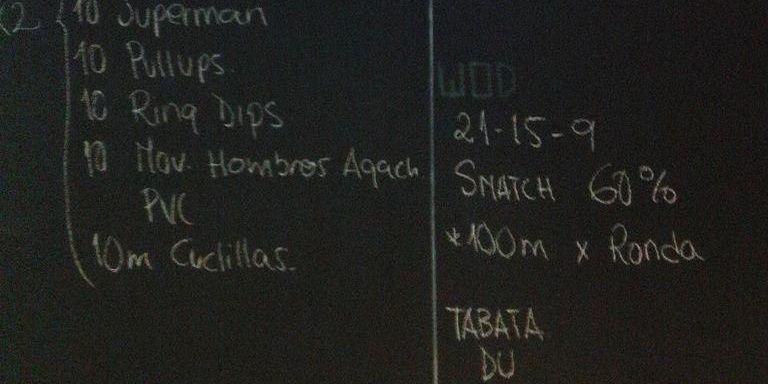 x2 10 Superman
10 Pullups.
10 Ring Dips
10 Mov. Hombros Agach
PVC
10m Cuclillas.
WOD
21-15-9
SNATCH 60%
*100m x Ronda
TABATA
DU